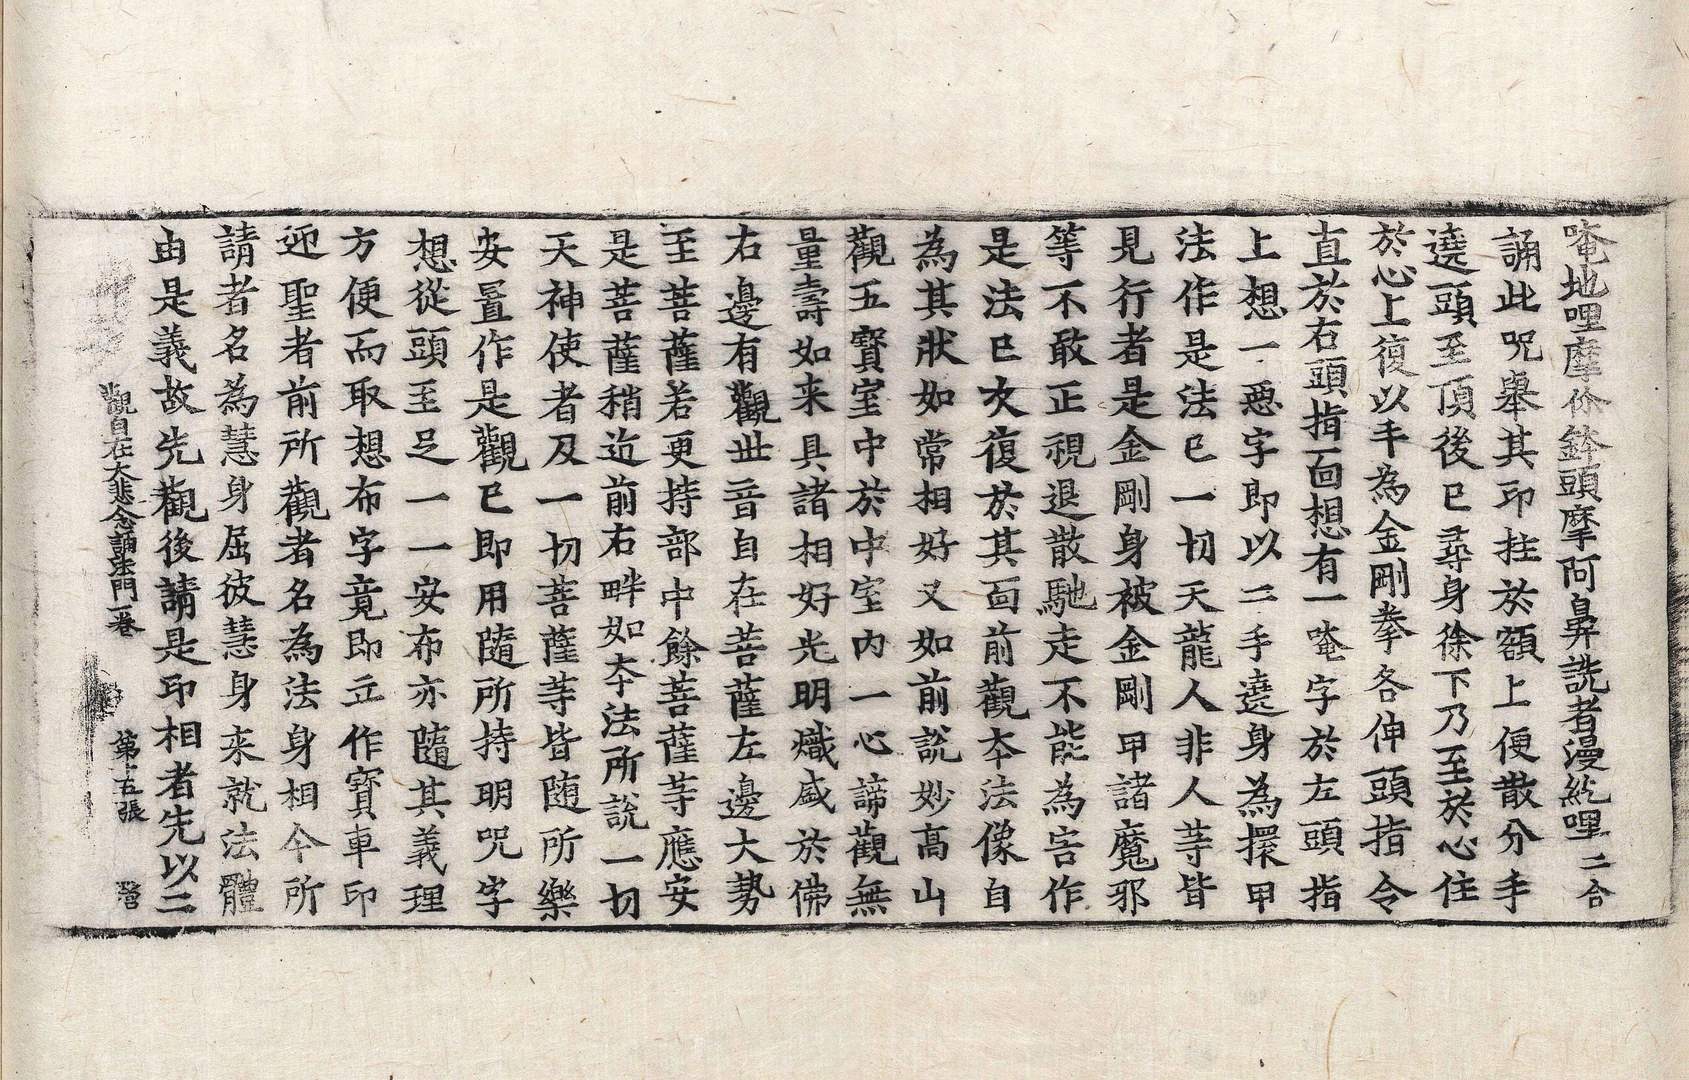 唵地哩摩祢鉢頭摩阿鼻詵者漫紇哩二合
誦此呪舉其印拄於額上便散分手
遶頭至頂後已尋身徐下乃至於心住
於心上復以手為金剛拳各伸頭指令
直於右頭指面想有一唵字於左頭指
上想一惡字即以二手遶身為擐甲
法作是法已一切天龍人非人等皆
見行者是金剛身被金剛甲諸魔邪
等不敢正視退散馳走不能為害作
是法已次復於其面前觀本法像自
為其狀如常相好又如前說妙高山
觀五寶室中於中室內一心諦觀無
量壽如来具諸相好光明熾盛於佛
右邊有觀世音自在菩薩左邊大勢
至菩薩若更持部中餘菩薩等應安
是菩薩稍近前右畔如本法所說一切
天神使者及一切菩薩等皆随所樂
安置作是觀已即用隨所持明呪字
想從頭至足一一安布亦隨其義理
方便而取想布字竟即立作寶車印
迎聖者前所觀者名為法身相今所
請者名為慧身屈彼慧身来就法體
由是義故先觀後請是印相者先以二
觀自在大悲念誦法門一卷　第十五張